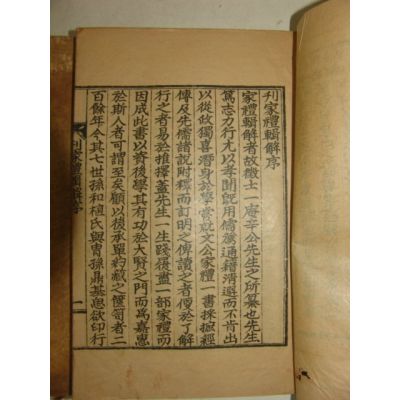 刊家禮輯解序
家禮輯解者故徵士一庵辛公先生之所纂也先生
篤志力行尤以孝聞旣用儒薦通籍清選而不肯出
以從政獨喜潛身於學嘗就文公家禮一書採摭經
傳及先儒諸說附釋而訂明之俾讀之者便於了解
行之者易於推擇蓋先生一生踐履盡一部家禮而
因成此書以齎後學其有功於大賢之門而爲嘉惠
於斯人者可謂至矣顧以後承單約藏之篋笥者二
百餘年今其七世孫和植氏與胄孫鼎基思欲印行
刊家禮輯解序
一